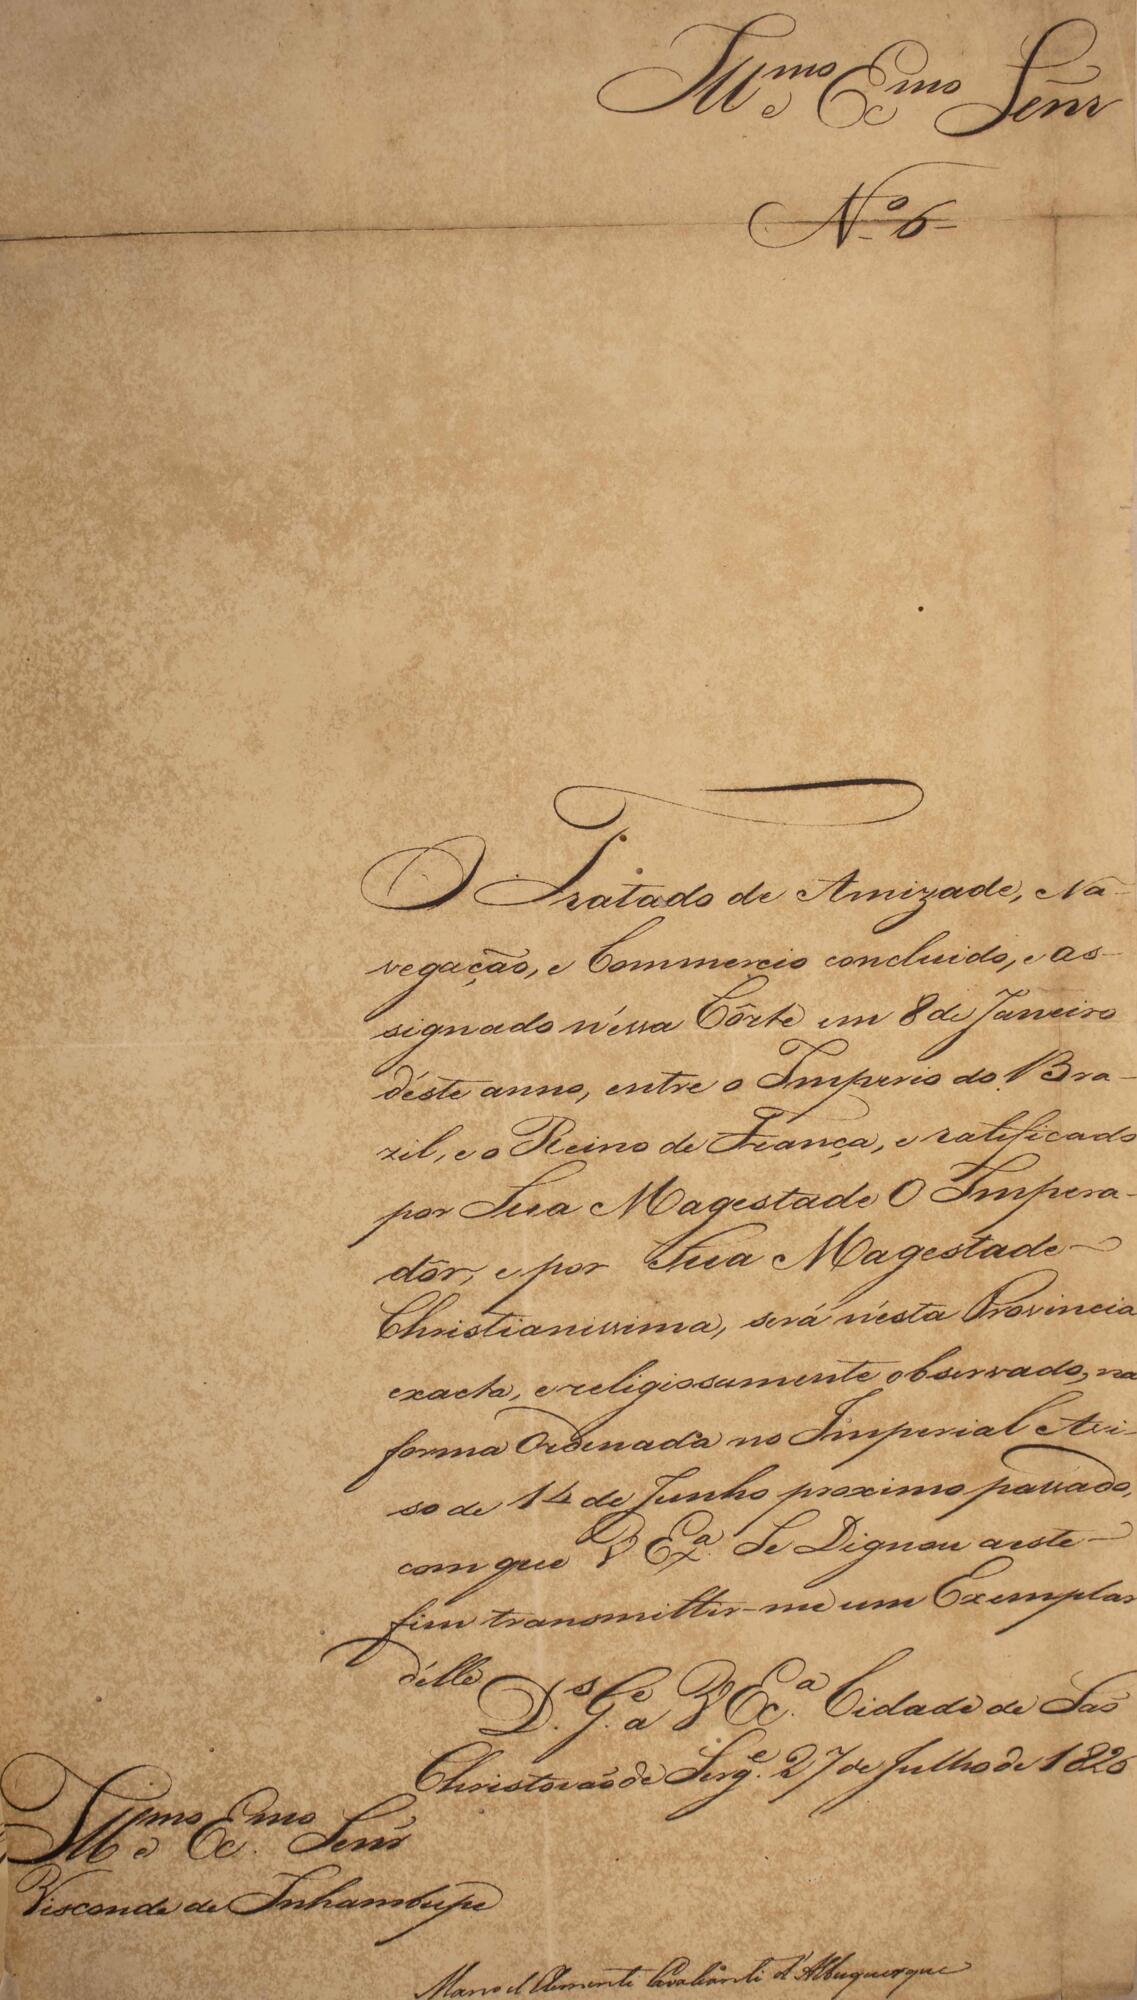 Ill.mo e Ex.mo Senr
Nº 6
O Tratado de Amizade, Na-
vegação, e Commercio concluido, e as-
signado n'essa Côrte em 8 de Janeiro
d'éste anno, entre o Imperio do Bra-
zil, e o Reino de França, e ratificado
por Sua Magestade O Impera-
dôr, e por Sua Magestade
Christianissima, será n'esta Provincia
exacta, e religiosamente observado, na
forma Ordenada no Imperial Avi-
so de 14 de Junho proximo passado,
com que V Exª. Se Dignou a este
fim transmittir-me um Exemplar
d'elle
D.s G.e a V Exª. Cidade de São
Christovão de Serg.e 27 de Julho de 1826
Ill.mo e Ex.mo Senr
Visconde de Inhambupe
Manoel Clemente Cavalcanti d'Albuquerque